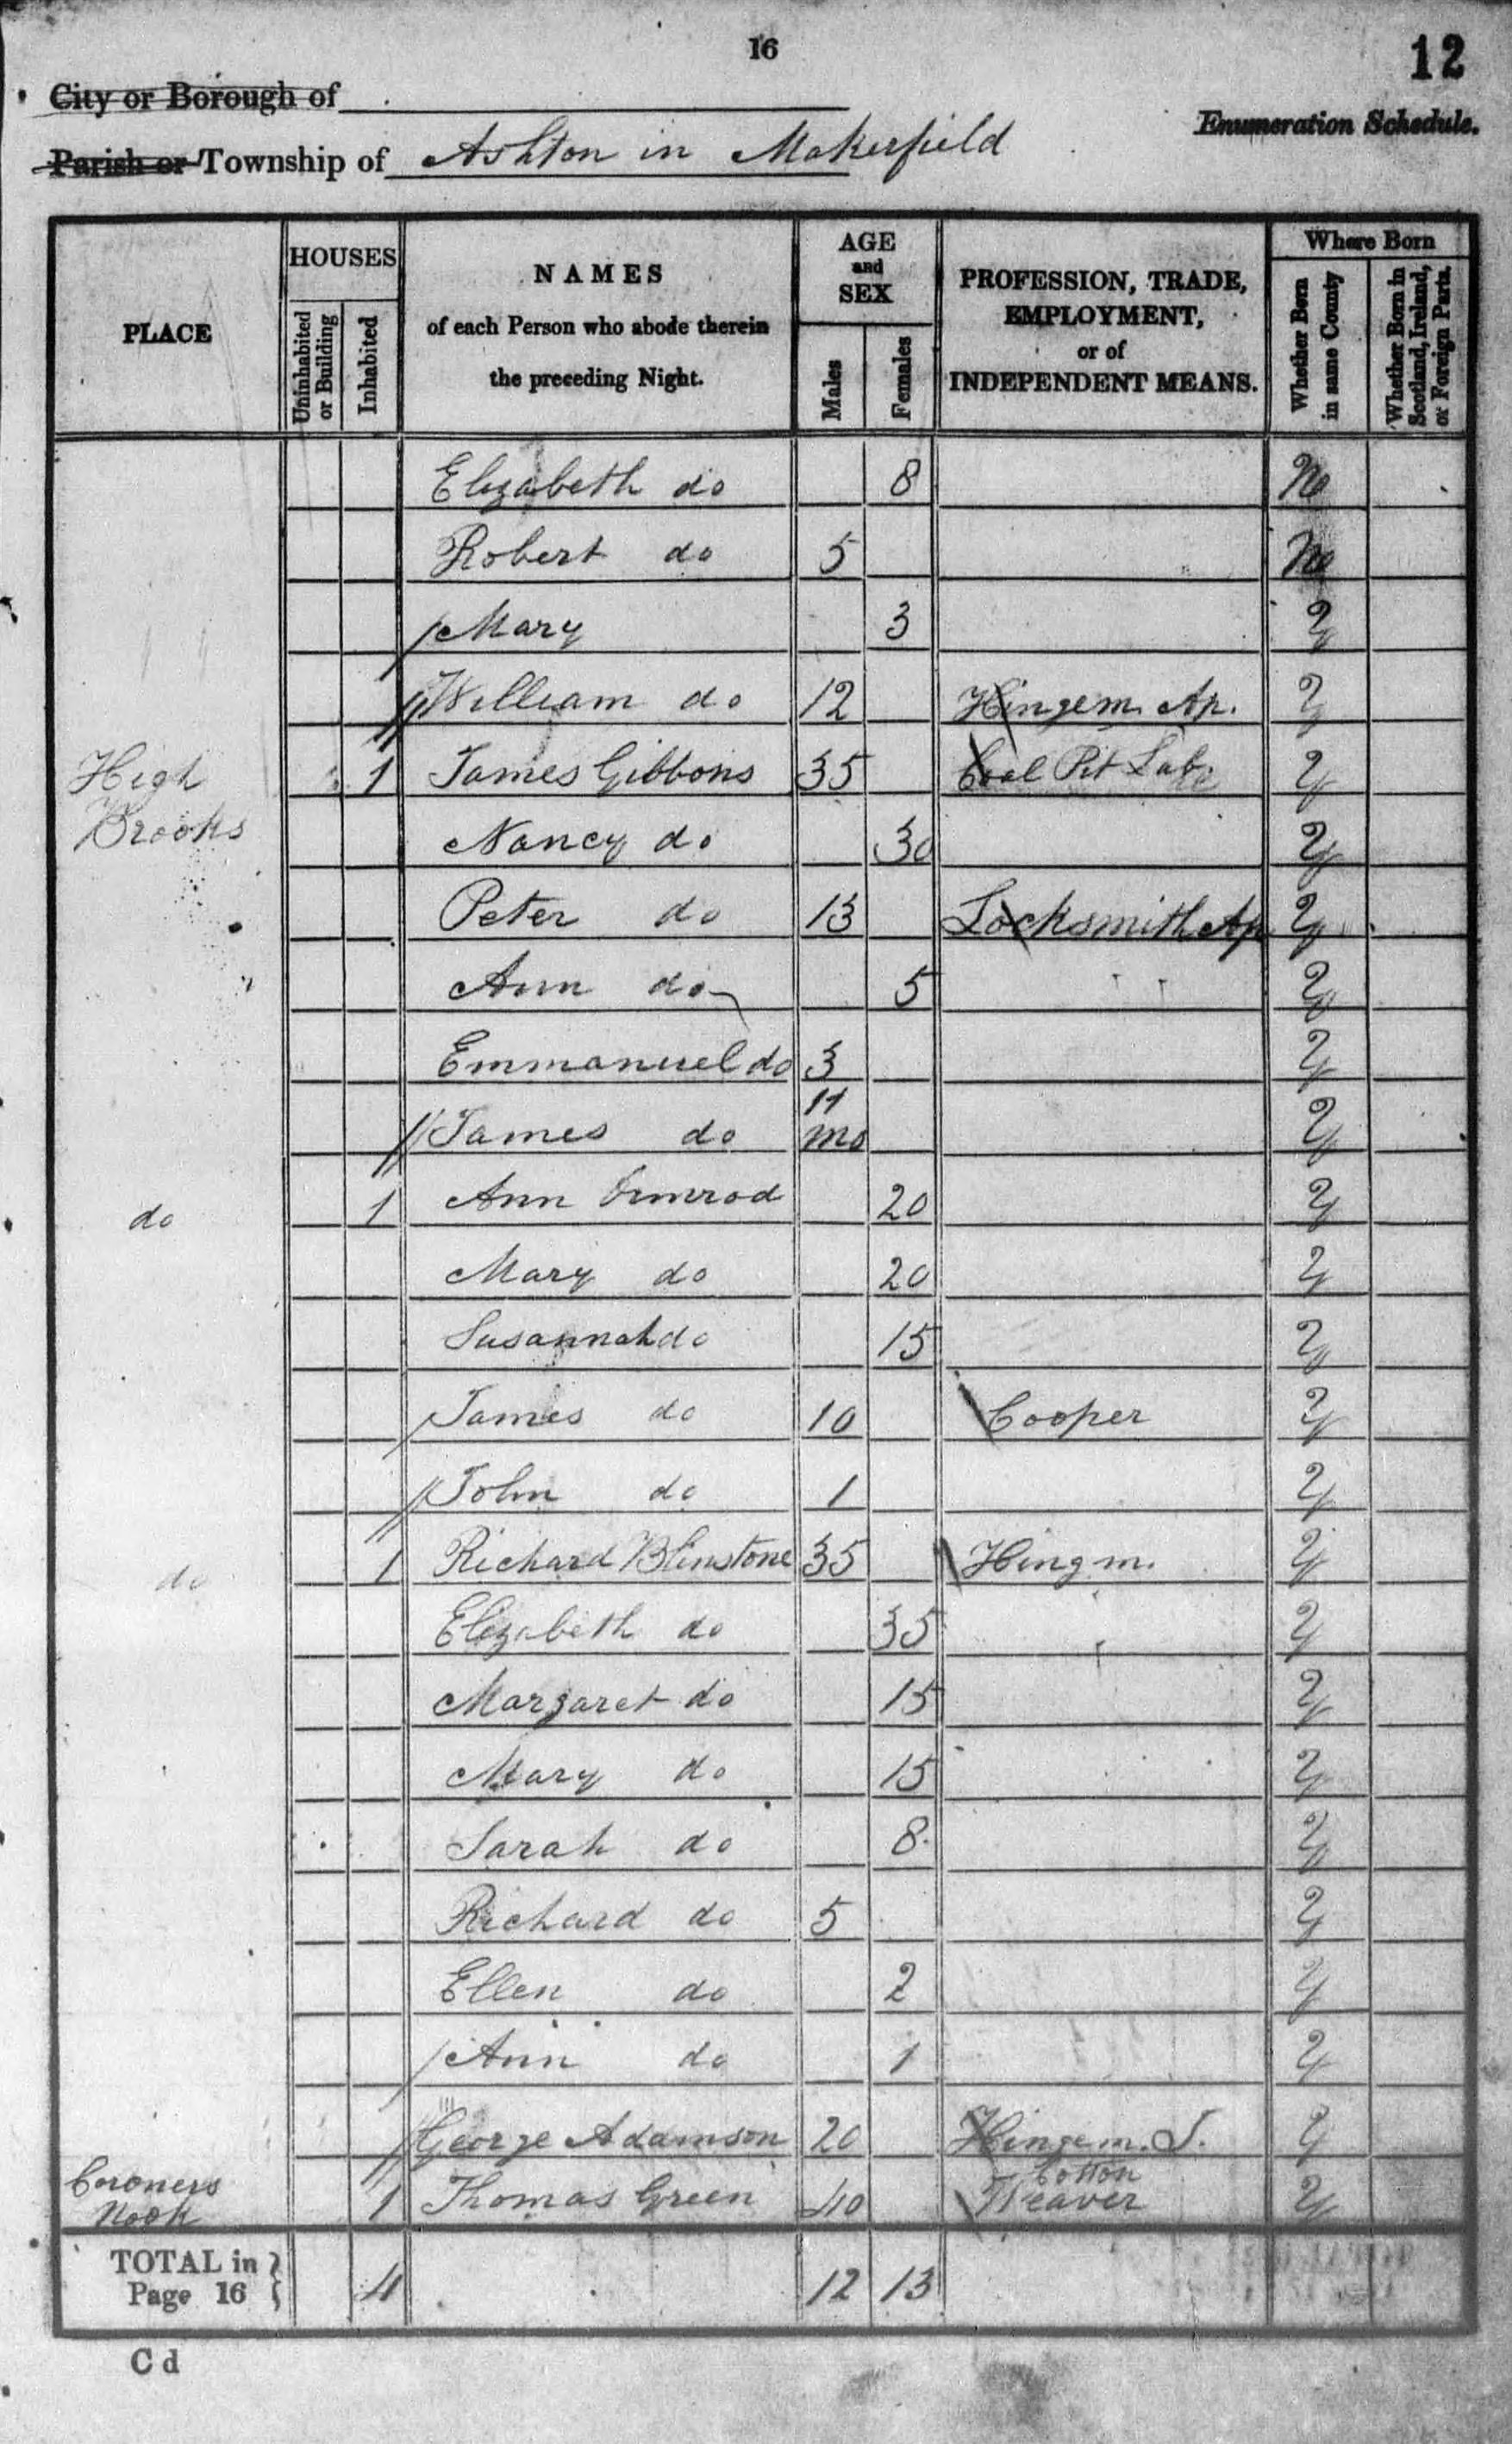 16
12
City or Borough of
Enumeration Schedule.
Parish or Township of Ashton in Makerfield
PLACE
HOUSES
Uninhabited or Building
Inhabited
NAMES
of each Person who abode therein
the preceding Night.
AGE
and
SEX
Males
Females
PROFESSION, TRADE,
EMPLOYMENT,
or of
INDEPENDENT MEANS.
Where Born
Whether Born in same County
Whether Born in Scotland, Ireland, or Foreign Parts.
Elizabeth do 8 No
Robert do 5 No
Mary 3 Y
William do 12 Hinge m. Ap. Y
High Brooks 1 James Gibbons 35 Coal Pit Lab. Y
Nancy do 30 Y
Peter do 13 Locksmith Ap Y
Ann do 5 Y
Emmanuel do 3 Y
James do 11 mo Y
do 1 Ann Ormrod 20 Y
Mary do 20 Y
Susannah do 15 Y
James do 10 Cooper Y
John do 1 Y
do 1 Richard Blinstone 35 Hing m. Y
Elizabeth do 35 Y
Margaret do 15 Y
Mary do 15 Y
Sarah do 8 Y
Richard do 5 Y
Ellen do 2 Y
Ann do 1 Y
George Adamson 20 Hinge m. J. Y
Coroners Nook 1 Thomas Green 40 Cotton Weaver Y
TOTAL in Page 16 4 12 13
C d